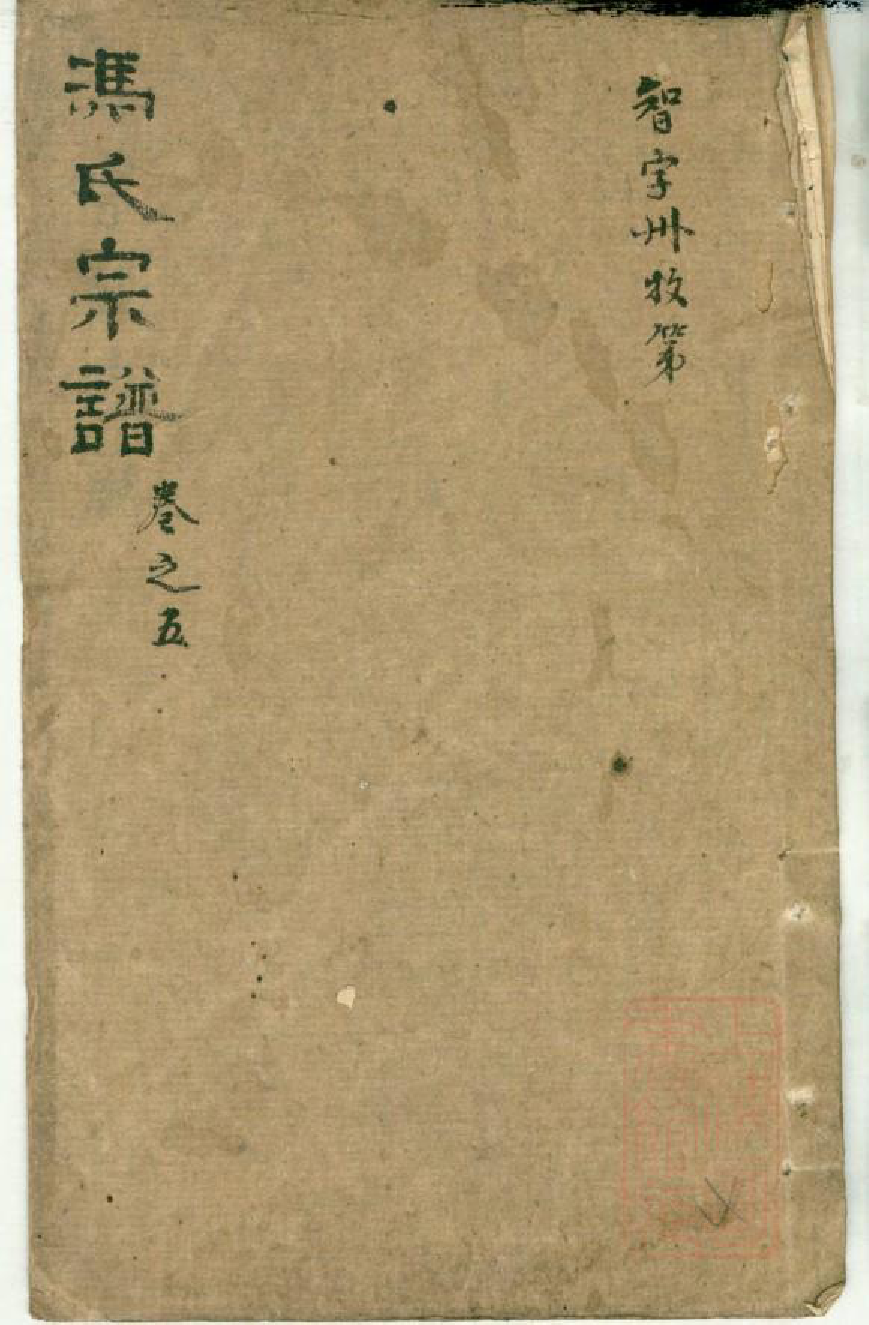 智字卅牧第
馮氏宗譜
卷之五